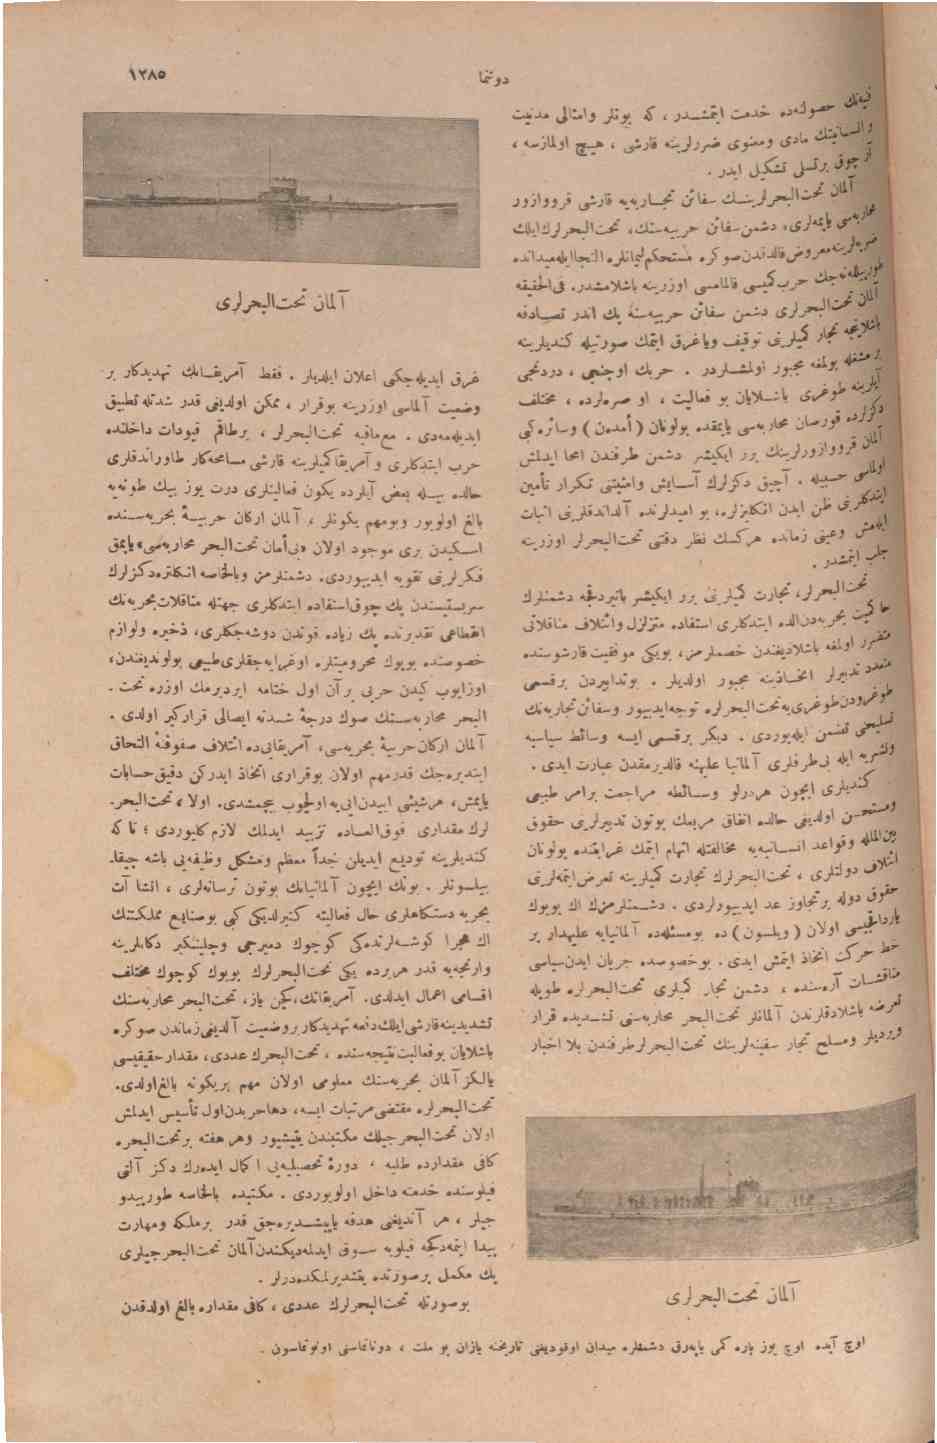 دوننما
١٢٨٥
فیه‌نك حصولنه‌ده خدمت ایتمشـدر ، كه بونلر وامثالی مدنیت
وانسـانیتك مادی ومعنوی ضررلرینه قارشی ، هیـچ اولمازسه ،
از چوق برتسلی تشكیل ایدر .
آلمان تحت‌البحرلرینـك سفائن تجـاریه‌یه قارشی قرووازور
محاربه‌سی یاپمه‌لری، دشمن سفائن حربیه‌سنك، تحت‌البحرلرك ایلك
ضربه‌لرینه معروض قالدقدن صوكره مستحكم لیمانلره التجا ایله میدانده
طورپیللنه‌جك حرب كمیسی قالمامسی اوزرینه باشلامشدر. فی‌الحقیقه
آلمان تحت‌البحرلری دشمن سفائن حربیه‌سنه پك اندر تصـادفه
باشلاینجه تجار كمیلرینی توقیف ویاغرق ایتمك صورتیله كندیلرینه
بر مشغله بولمغه مجبور اولمشـلردر . حربك اوچنجی ، دردنجی
آیلرینه طوغری باشـلایان بو فعالیت ، او صره‌لرده ، مختلف
دكزلرده قورصان محاربه‌سی یاپمقده بولونان (أمدەن) وسائره كبی
آلمان قرووازورلرینك برر ایكیشر دشمن طرفندن امحا ایدلمش
اولماسی حسبیله . آچیق دكزلرك آسـایش وامنیتنی تكرار تأمین
ایتدكلرینی ظن ایدن انكلیزلره، بو امیدلرنده آلداندقلرینی اثبات
ایله‌مش وعینی زمانده هركسك نظر دقتی تحت‌البحرلر اوزرینه
جلب ایتمشدر .
تحت‌البحرلر، تجارت كمیلرینی برر ایكیشر باتیردقجه دشمنلرك
حاكمیت بحریه‌دن الده ایتدكلری استفاده متزلزل وائتلاف مناقلاتی
متضرر اولمغه باشلادیغندن خصملرمز، بویكی موفقیت قارشوسنده
متعدد تدبیرلر اتخـاذینه مجبور اولدیلر . بوتدابیردن برقسمی
طوغریدن طوغری‌یه تحت‌البحرلره توجه ایدییور وسفائن تجاریه‌نك
تسلیحنی تضمن ایله‌یوردی . دیكر برقسمی ایسه وسائط سیاسیه
ونشریه ایله بی‌طرفلری آلمانیا علیهنه قالدیرمقدن عبارت ایدی .
كندیلری ایچون هردرلو وسـائطه مراجعت برامر طبیعی
ومستحسن اولدیغی حالده اتفاق مربعك بوتون تدبیرلرینی حقوق
بین‌المللە وقواعد انسـانیه‌یه مخالفتله اتهام ایتمك غرابتنده بولونان
ائتلاف دولتلری ، تحت‌البحرلرك تجارت كمیلرینه تعرض ایتمه‌لرینی
حقوق دوله برتجاوز عد ایدییورلردی . دشـمنلرمزك اك بویوك
یارداقجیسی اولان ( ویلسون ) ده بومسئله‌ده آلمانیایه علیهدار بر
خط حركت اتخاذ ایتمش ایدی . بوخصوصده جریان ایدن سیاسی
مناقشـات آره‌سنده ، دشمن تجار كمیلری تحت‌البحرلره طوپله
تعرضه باشلادقلرندن آلمانلر تحت‌البحر محاربه‌سنی تشـدیده قرار
ویردیلر ومسلح تجار سفینه‌لرینك تحت‌البحرلر طرفندن بلا اخبار
آلمان تحت‌البحرلری
آلمان تحت‌البحرلری
غرق ایدیله‌جكنی اعلان ایلدیلر . فقط آمریقـانك تهدیدكار بر
وضعیت آلماسی اوزرینه بوقرار ، ممكن اولدیغی قدر شدتله تطبیق
ایدیله‌مه‌دی . مع‌مافیه تحت‌البحرلر ، برطاقم قیودات داخلنده
حرب ایتدكلری و آمریقا كمیلرینه قارشی مسامحه‌كار طاوراندقلری
حالده بیـله بعض آیلرده یكون فعالیتلری درت یوز بیك طونه‌یه
بالغ اولویور وبومهم یكونلر ، آلمان اركان حربیـۀ بحریه‌سـنده
اسـكیدن بری موجود اولان «بی‌أمان تحت‌البحر محاربه‌سی» یاپمق
فكرلرینی تقویه ایدییوردی. دشمنلرمز وبالخاصه انكلتره دكزلرك
سربستیسندن پك چوق استفاده ایتدكلری جهتله مناقلات بحریه‌نك
انقطاعی تقدیرنده پك زیاده قوتدن دوشه‌جكلری، ذخیره ولوازم
خصوصنده بویوك محرومیتلره اوغرایه‌جقلری طبیعی بولوندیغندن،
اوزایوب كیدن حربی برآن اول ختامه ایردیرمك اوزره تحت-
البحر محاربه‌سـنك صوك درجۀ شـدته ایصالی قراركیر اولدی .
آلمان اركان حربیۀ بحریه‌سی، آمریقانی‌ده ائتلاف صفوفنه التحاق
ایتدیره‌جك قدرمهم اولان بوقراری اتخاذ ایدركن دقیق حسابات
یاپمش، هرشیئی اییدن ایی‌یه اولچوب بیچمشدی. اولا، تحت‌البحر-
لرك مقداری فوق‌العـاده تزیید ایدلمك لازم كلیوردی ؛ تا كه
كندیلرینه تودیع ایدیلن جداً معظم ومشكل وظیفه‌یی باشه چیقا-
بیلسونلر . بونك ایچون آلمانیانك بوتون ترسانه‌لری ، انشا آت
بحریه دستكاهلری حال فعالیته كتیرلدیكی كبی بوصنایع مملكتنك
اك هجرا كوشـه‌لرنده‌كی كوچوك دمیرجی وچلینكیر دكانلرینه
وارنجه‌یه قدر هربرده یكی تحت‌البحرلرك بویوك كوچوك مختلف
اقسامی اعمال ایدلدی. آمریقانك، كچن یاز، تحت‌البحر محاربه‌سنك
تشدیدینه قارشی ایلك دفعه تهدیدكار بروضعیت آلدیغی زماندن صوكره
باشلایان بوفعالیت نتیجه‌سنده ، تحت‌البحرك عددی، مقدار حقیقیسی
یالكز آلمان بحریه‌سنك معلومی اولان مهم بریكونه بالغ اولدی.
تحت‌البحرلره مقتضی مرتبات ایسه، دها حربدن اول تأسیس ایدلمش
اولان تحت‌البحرجیلك مكتبندن یتیشیور وهر هفته برتحت‌البحره
كافی مقدارده طلبه ، دورۀ تحصیلیه‌یی اكمال ایده‌رك دكز آلتی
فیلوسنده خدمته داخل اولویوردی . مكتبده بالخاصه طورپیدو
جیلر ، هر آندیغی هدفه یاپیشـدیره‌جق قدر برملكه ومهارت
پیدا ایتمه‌دكجه فیلویه سـوق ایدلمه‌دیكندن آلمان تحت‌البحرجیلری
پك مكمل برصورتده یتشدیرلمكده‌درلر .
بوصورتله تحت‌البحرلرك عددی ، كافی مقداره بالغ اولدقدن
اوچ آیده اوچ یوز پاره كمی یاپه‌رق دشمنلره میدان اوقودیغنی تاریخنه یازان بو ملت ، دوننماسنی اونوتماسون .